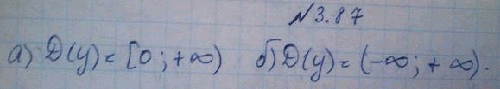 №3.87
а) D(y) = [0 ; +∞) б) D(y) = (-∞ ; +∞).